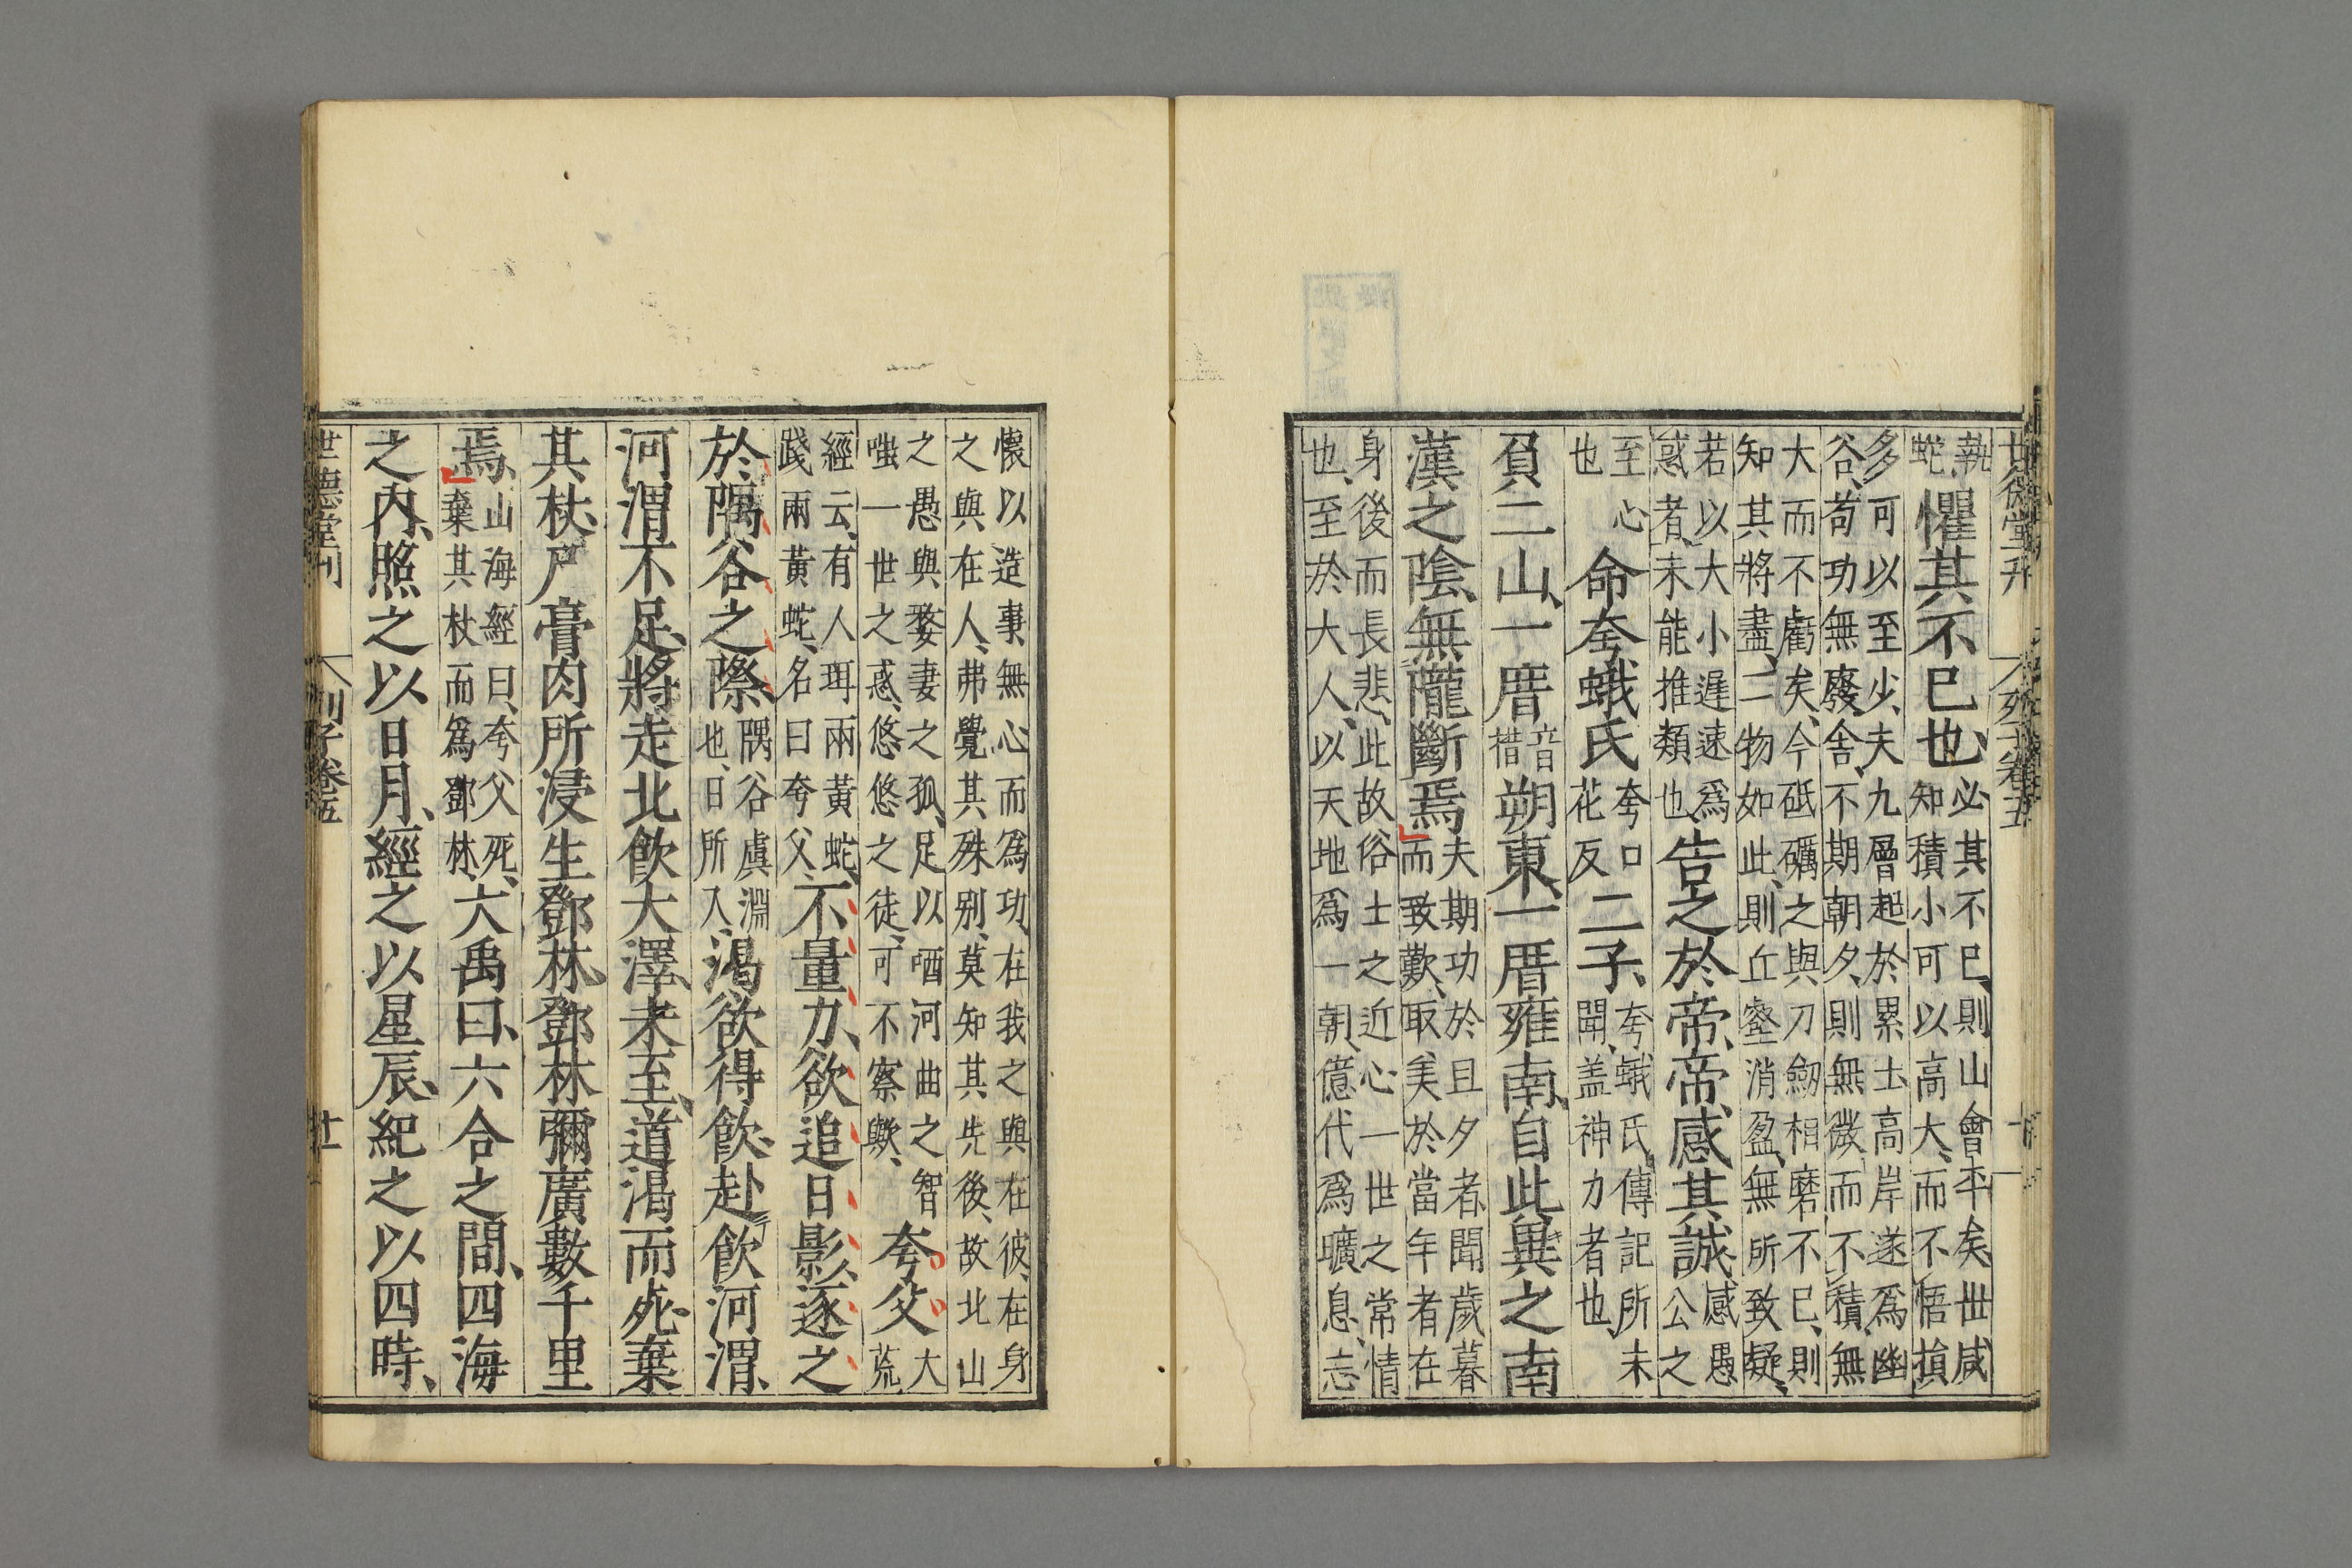 執蛇懼其不已也、必其不已、則山會平矣、世咸知積小可以高大、而不悟損
多可以至少、夫九層起於累土、高岸遂爲幽谷、苟功無廢舍、不期朝夕、則無微而不積、無
大而不虧矣、今砥礪之與刀劒相磨不已、則知其將盡、二物如此、則丘壑消盈、無所致疑、
若以大小遲速爲惑者、未能推類也、告之於帝、帝感其誠、感愚公之
至心也命夸蛾氏夸口花反二子、夸蛾氏傳記所未聞、盖神力者也、
負二山、一厝音措朔東、一厝雍南、自此冀之南
漢之隂、無隴斷焉夫期功於旦夕者、聞歲暮而致歎、取美於當年者、在
身後而長悲、此故俗士之近心、一世之常情也、至於大人、以天地爲一朝、億代爲曠息、忘
懷以造事、無心而爲功、在我之與在彼、在身之與在人、弗覺其殊别、莫知其先後、故北山
之愚與嫠妻之孤、足以哂河曲之智嗤一世之惑、悠悠之徒、可不察歟、夸父大荒
經云、有人珥兩黃蛇、踐兩黃蛇、名曰夸父、不量力、欲追日影、逐之
於隅谷之際隅谷虞淵也、日所入、渴欲得飲、赴飲河渭、
河渭不足、將走北飲大澤、未至、道渴而死、棄
其杖、尸膏肉所浸、生鄧林、鄧林彌廣數千里
焉、山海經曰、夸父死、棄其杖而爲鄧林、大禹曰、六合之間、四海
之內、照之以日月、經之以星辰、紀之以四時、
世德堂刊 列子卷五 廿一